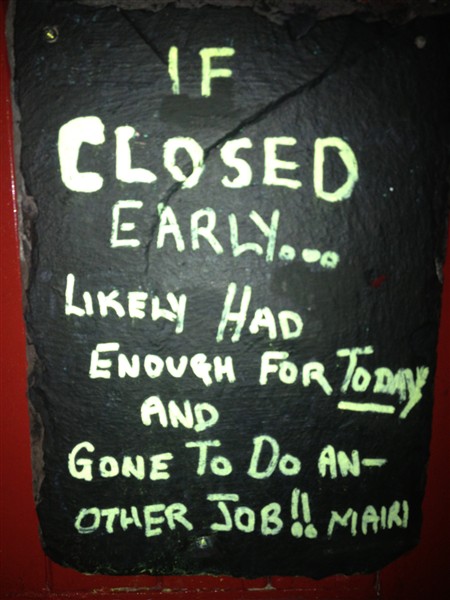 IF
CLOSED
EARLY...
LIKELY HAD
ENOUGH FOR TODAY
AND
GONE TO DO AN-
OTHER JOB!! MAIRI